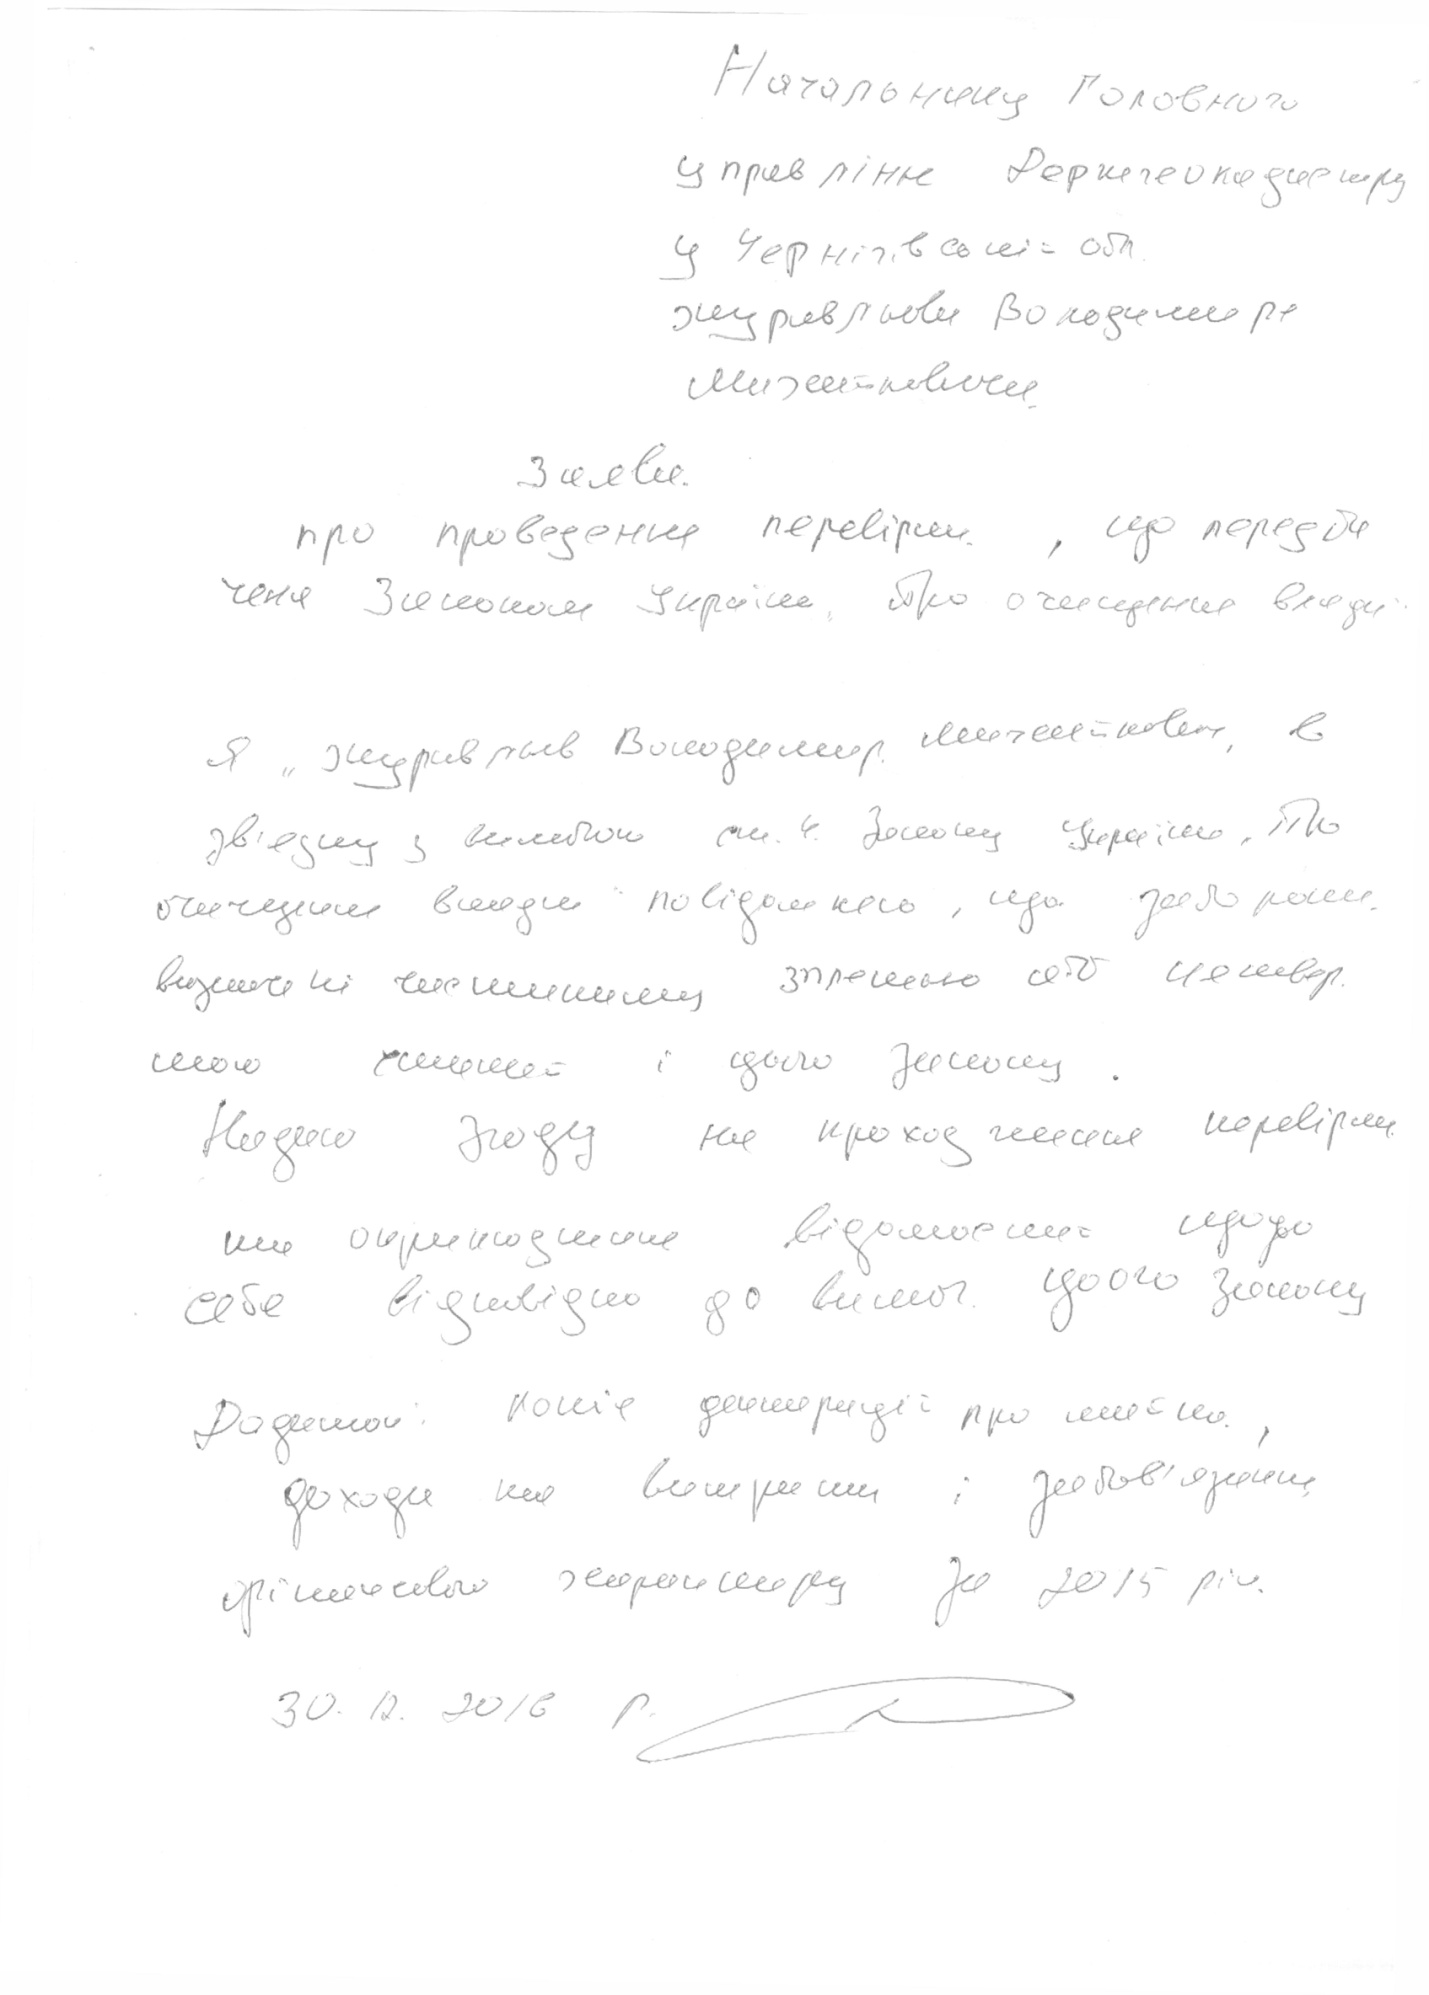 Начальнику Головного
управління Держгеокадастру
у Чернігівській обл.
Журавльова Володимира
Михайловича.
Заява.
про проведення перевірки, що передба
чена Законом України „Про очищення влади"
Я, Журавльов Володимир Михайлович, в
зв'язку з вимогою ст. 4 Закону України „Про
очищення влади" повідомляю, що заборони
визначені частиною третьою або четвер
тою статті 1 цього Закону.
Надаю згоду на проходження перевірки
та оприлюднення відомостей щодо
себе відповідно до вимог цього Закону
Додаток: копія декларації про майно,
доходи та витрати і зобов'язання
фінансового характеру за 2015 рік.
30.12.2016 р.